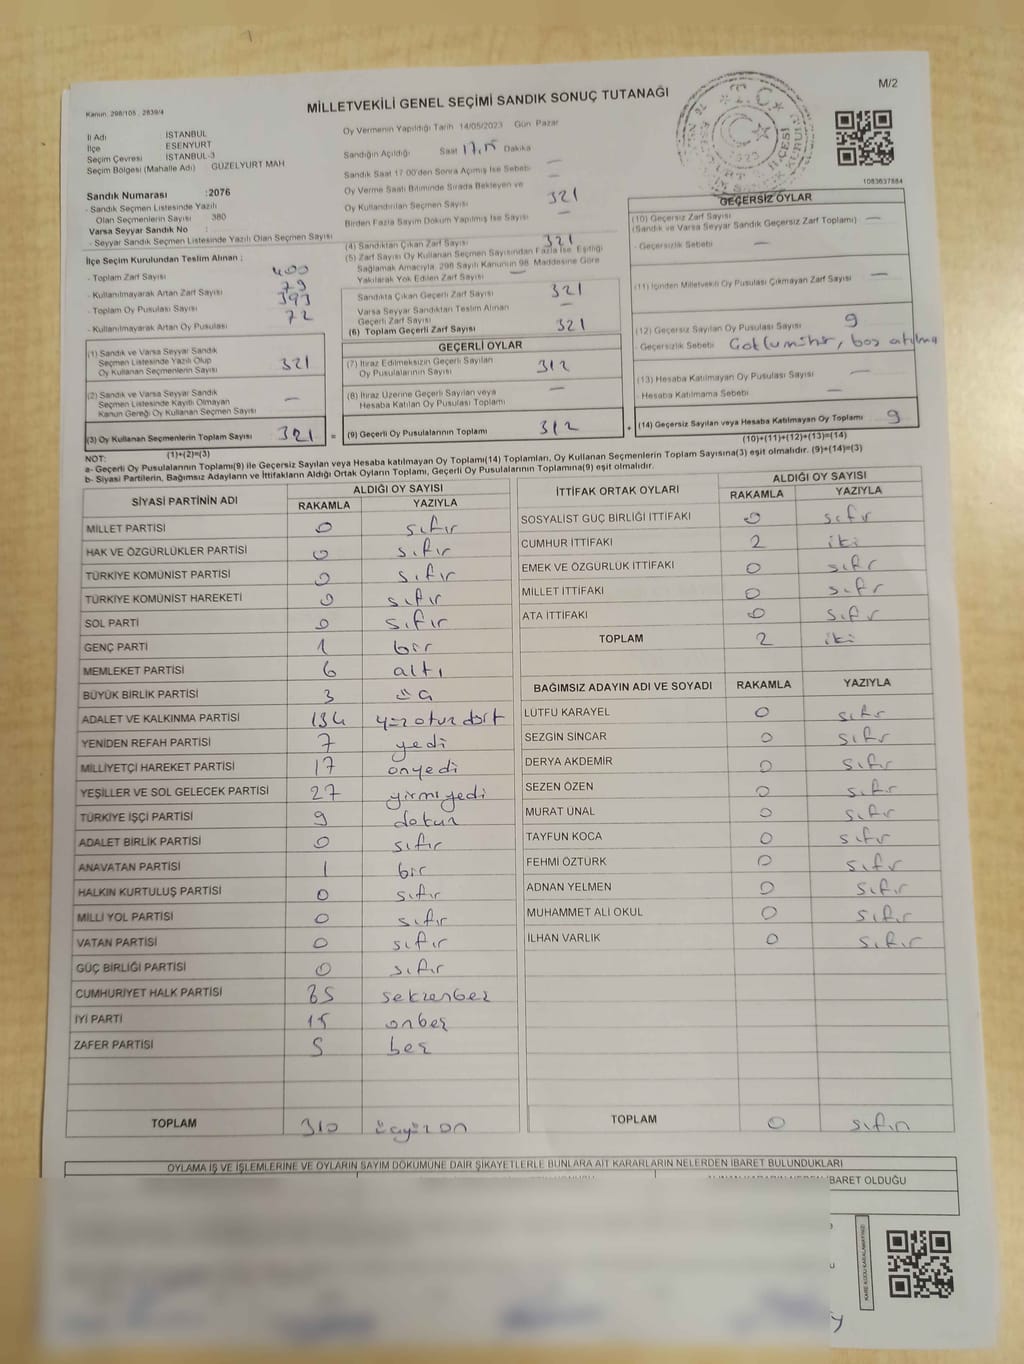 M/2
Kanun, 298/105 , 2839/4
MİLLETVEKİLİ GENEL SEÇİMİ SANDIK SONUÇ TUTANAĞI
1083637884
İl Adı İSTANBUL
İlçe ESENYURT
Seçim Çevresi İSTANBUL-3
Seçim Bölgesi (Mahalle Adı) GÜZELYURT MAH
Sandık Numarası :2076
- Sandık Seçmen Listesinde Yazılı
Olan Seçmenlerin Sayısı 380
Varsa Seyyar Sandık No :
- Seyyar Sandık Seçmen Listesinde Yazılı Olan Seçmen Sayısı
İlçe Seçim Kurulundan Teslim Alınan ;
- Toplam Zarf Sayısı 400
- Kullanılmayarak Artan Zarf Sayısı 79
- Toplam Oy Pusulası Sayısı 393
- Kullanılmayarak Artan Oy Pusulası 72
(1) Sandık ve Varsa Seyyar Sandık
Seçmen Listesinde Yazılı Olup
Oy Kullanan Seçmenlerin Sayısı 321
(2) Sandık ve Varsa Seyyar Sandık
Seçmen Listesinde Kayıtlı Olmayan
Kanun Gereği Oy Kullanan Seçmen Sayısı —
(3) Oy Kullanan Seçmenlerin Toplam Sayısı 321 =
(1)+(2)=(3)
Oy Vermenin Yapıldığı Tarih 14/05/2023 Gün Pazar
Sandığın Açıldığı Saat 17,15 Dakika
Sandık Saat 17:00'den Sonra Açımış İse Sebebi —
Oy Verme Saati Bitiminde Sırada Bekleyen ve —
Oy Kullandırılan Seçmen Sayısı 321
Birden Fazla Sayım Döküm Yapılmış İse Sayısı —
(4) Sandıktan Çıkan Zarf Sayısı 321
(5) Zarf Sayısı Oy Kullanan Seçmen Sayısından Fazla İse, Eşitliği
Sağlamak Amacıyla, 298 Sayılı Kanunun 98. Maddesine Göre
Yakılarak Yok Edilen Zarf Sayısı —
Sandıkta Çıkan Geçerli Zarf Sayısı 321
Varsa Seyyar Sandıktan Teslim Alınan
Geçerli Zarf Sayısı —
(6) Toplam Geçerli Zarf Sayısı 321
GEÇERLİ OYLAR
(7) İtiraz Edilmeksizin Geçerli Sayılan
Oy Pusulalarının Sayısı 312
(8) İtiraz Üzerine Geçerli Sayılan veya
Hesaba Katılan Oy Pusulası Toplamı —
(9) Geçerli Oy Pusulalarının Toplamı 312 +
GEÇERSİZ OYLAR
(10) Geçersiz Zarf Sayısı
(Sandık ve Varsa Seyyar Sandık Geçersiz Zarf Toplamı) —
- Geçersizlik Sebebi —
(11) İçinden Milletvekili Oy Pusulası Çıkmayan Zarf Sayısı —
(12) Geçersiz Sayılan Oy Pusulası Sayısı 9
- Geçersizlik Sebebi boş atılma
(13) Hesaba Katılmayan Oy Pusulası Sayısı —
- Hesaba Katılmama Sebebi —
(14) Geçersiz Sayılan veya Hesaba Katılmayan Oy Toplamı 9
(10)+(11)+(12)+(13)=(14)
NOT:
a- Geçerli Oy Pusulalarının Toplamı(9) ile Geçersiz Sayılan veya Hesaba katılmayan Oy Toplamı(14) Toplamları, Oy Kullanan Seçmenlerin Toplam Sayısına(3) eşit olmalıdır. (9)+(14)=(3)
b- Siyasi Partilerin, Bağımsız Adayların ve İttifakların Aldığı Ortak Oyların Toplamı, Geçerli Oy Pusulalarının Toplamına(9) eşit olmalıdır.
SİYASİ PARTİNİN ADI ALDIĞI OY SAYISI
RAKAMLA YAZIYLA
MİLLET PARTİSİ 0 sıfır
HAK VE ÖZGÜRLÜKLER PARTİSİ 0 sıfır
TÜRKİYE KOMÜNİST PARTİSİ 0 sıfır
TÜRKİYE KOMÜNİST HAREKETİ 0 sıfır
SOL PARTİ 0 sıfır
GENÇ PARTİ 1 bir
MEMLEKET PARTİSİ 6 altı
BÜYÜK BİRLİK PARTİSİ 3 üç
ADALET VE KALKINMA PARTİSİ 134 yüz otuz dört
YENİDEN REFAH PARTİSİ 7 yedi
MİLLİYETÇİ HAREKET PARTİSİ 17 onyedi
YEŞİLLER VE SOL GELECEK PARTİSİ 27 yirmiyedi
TÜRKİYE İŞÇİ PARTİSİ 9 dokuz
ADALET BİRLİK PARTİSİ 0 sıfır
ANAVATAN PARTİSİ 1 bir
HALKIN KURTULUŞ PARTİSİ 0 sıfır
MİLLİ YOL PARTİSİ 0 sıfır
VATAN PARTİSİ 0 sıfır
GÜÇ BİRLİĞİ PARTİSİ 0 sıfır
CUMHURİYET HALK PARTİSİ 85 seksenbeş
İYİ PARTİ 15 onbeş
ZAFER PARTİSİ 5 beş
TOPLAM 310 üçyüz on
İTTİFAK ORTAK OYLARI ALDIĞI OY SAYISI
RAKAMLA YAZIYLA
SOSYALİST GÜÇ BİRLİĞİ İTTİFAKI 0 sıfır
CUMHUR İTTİFAKI 2 iki
EMEK VE ÖZGÜRLÜK İTTİFAKI 0 sıfır
MİLLET İTTİFAKI 0 sıfır
ATA İTTİFAKI 0 sıfır
TOPLAM 2 iki
BAĞIMSIZ ADAYIN ADI VE SOYADI RAKAMLA YAZIYLA
LÜTFÜ KARAYEL 0 sıfır
SEZGİN SİNCAR 0 sıfır
DERYA AKDEMİR 0 sıfır
SEZEN ÖZEN 0 sıfır
MURAT ÜNAL 0 sıfır
TAYFUN KOCA 0 sıfır
FEHMİ ÖZTÜRK 0 sıfır
ADNAN YELMEN 0 sıfır
MUHAMMET ALİ OKUL 0 sıfır
İLHAN VARLIK 0 sıfır
TOPLAM 0 sıfır
OYLAMA İŞ VE İŞLEMLERİNE VE OYLARIN SAYIM DÖKÜMÜNE DAİR ŞİKAYETLERLE BUNLARA AİT KARARLARIN NELERDEN İBARET BULUNDUKLARI
İBARET OLDUĞU
KARE KODU KARALAMAYINIZ!